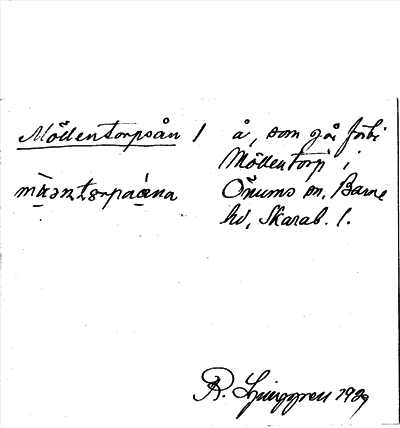 Möllentorpsån / å, som går förbi
Möllentorp i
Önums sn, Barne
hd, Skarab. l.
R. Ljunggren 1929